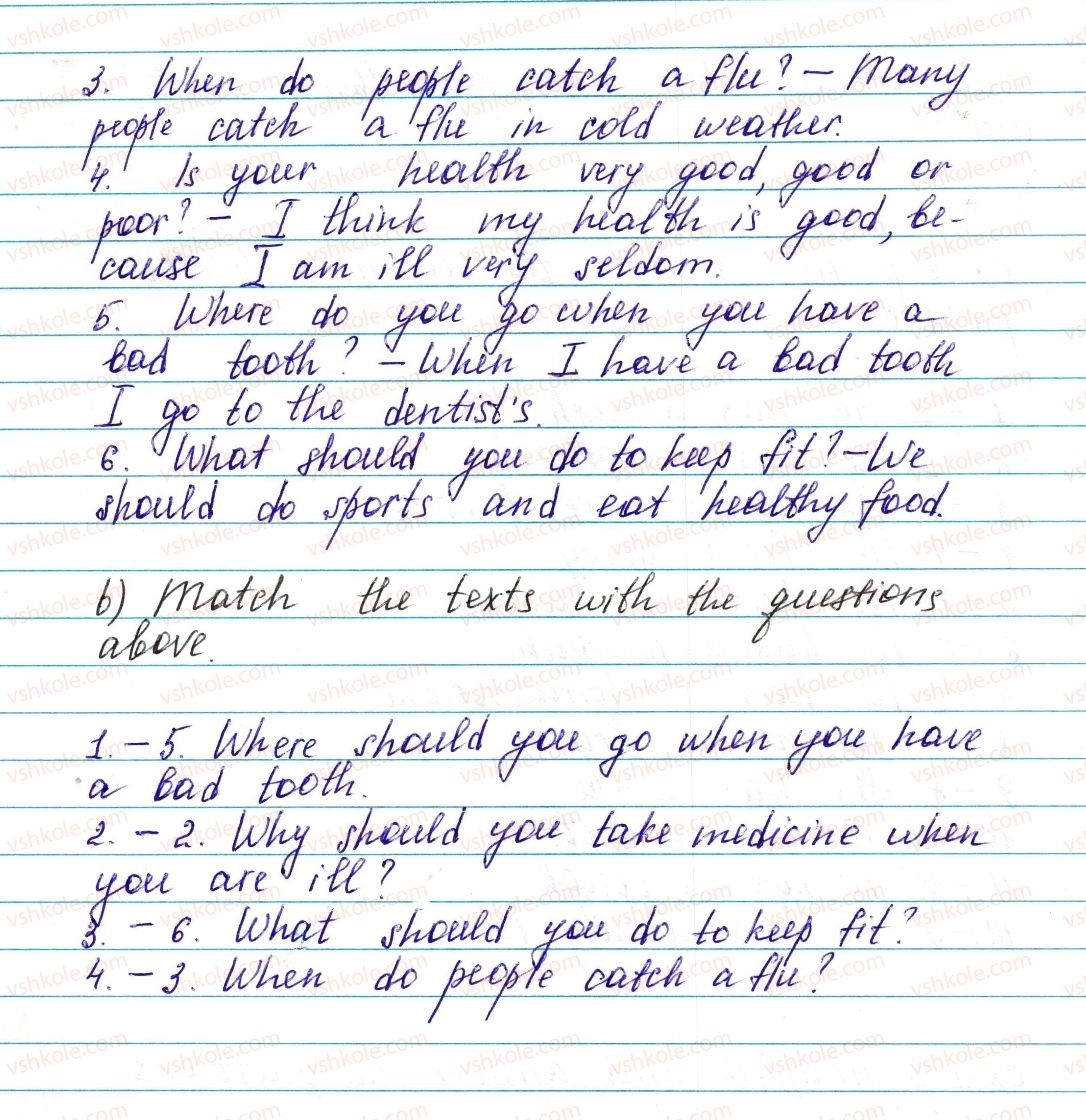 3. When do people catch a flu? – Many
people catch a flu in cold weather.
4. Is your health very good, good or
poor? – I think my health is good, be-
cause I am ill very seldom.
5. Where do you go when you have a
bad tooth? – When I have a bad tooth
I go to the dentist's.
6. What should you do to keep fit? – We
should do sports and eat healthy food.
b) Match the texts with the questions
above.
1. – 5. Where should you go when you have
a bad tooth.
2. – 2. Why should you take medicine when
you are ill?
3. – 6. What should you do to keep fit?
4. – 3. When do people catch a flu?
vshkole.com